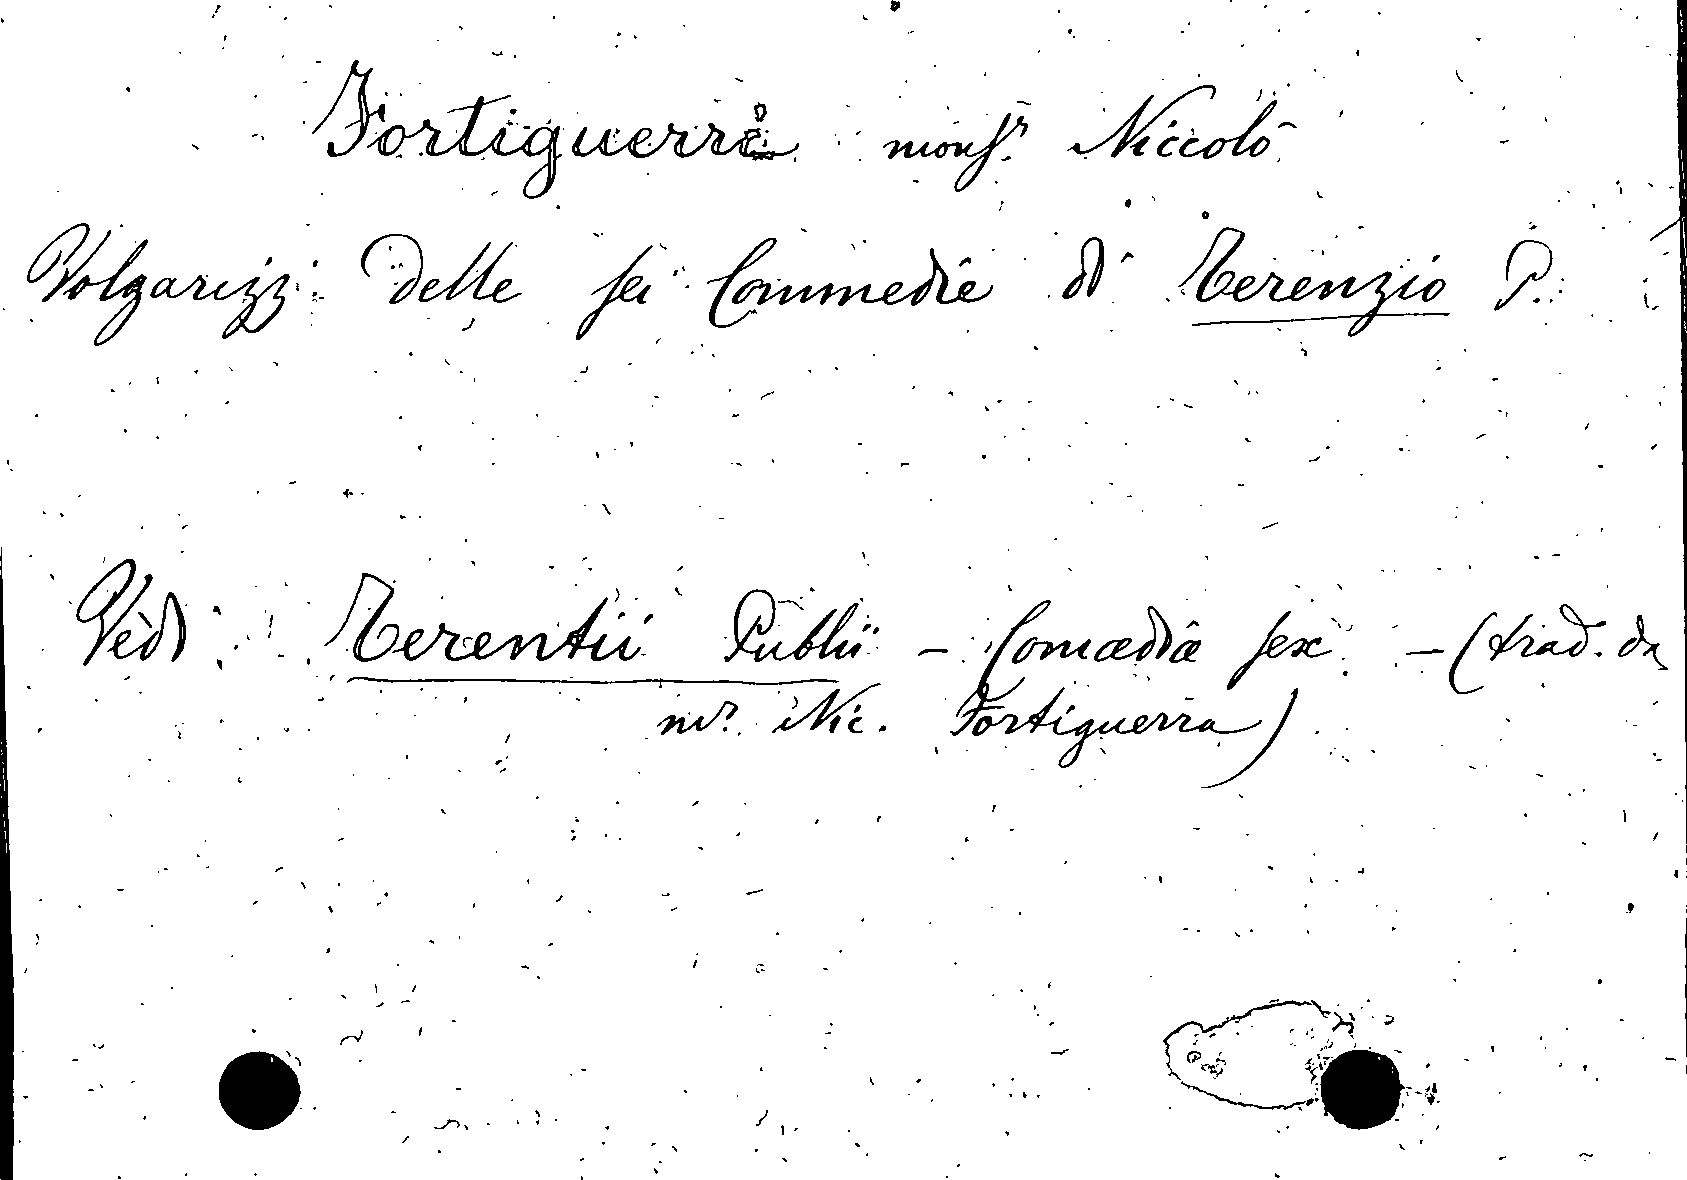 Fortiguerri monsr. Niccolò
Volgarizz. delle sei Commedie di Terenzio P.
Vedi Terentii Publii - Comœdiæ sex - (trad. da
mr. Nic. Fortiguerra)